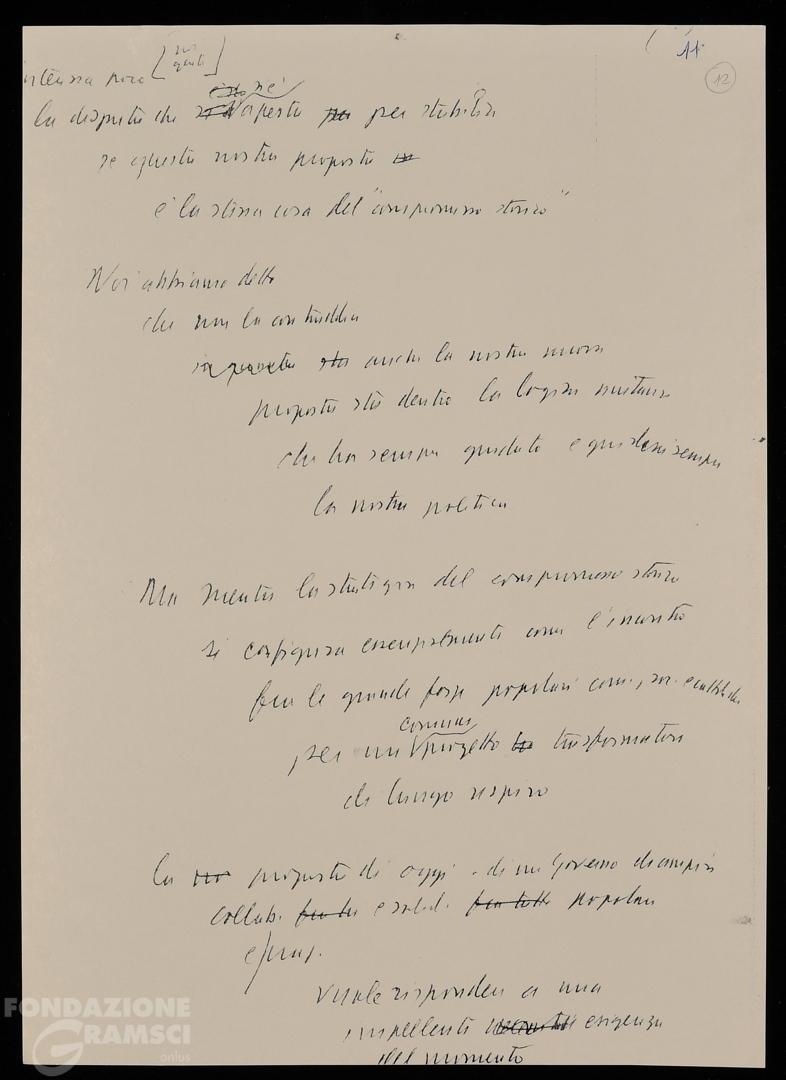 11
12
la disputa che si è aperta per stabilire
se questa nostra proposta
è la stessa cosa del "compromesso storico"
Noi abbiamo detto
che non la contraddice
anche la nostra nuova
proposta sta dentro la logica unitaria
che ha sempre guidato e guiderà sempre
la nostra politica
Ma mentre la strategia del compromesso storico
si configura essenzialmente come l'incontro
fra le grandi forze popolari com., soc. e cattoliche
comune
per un progetto trasformatore
di lungo respiro
la proposta di oggi - di un governo di ampia
collab. e solid. popolare
e prog.
vuole rispondere a una
impellente esigenza
del momento
FONDAZIONE
GRAMSCI
onlus